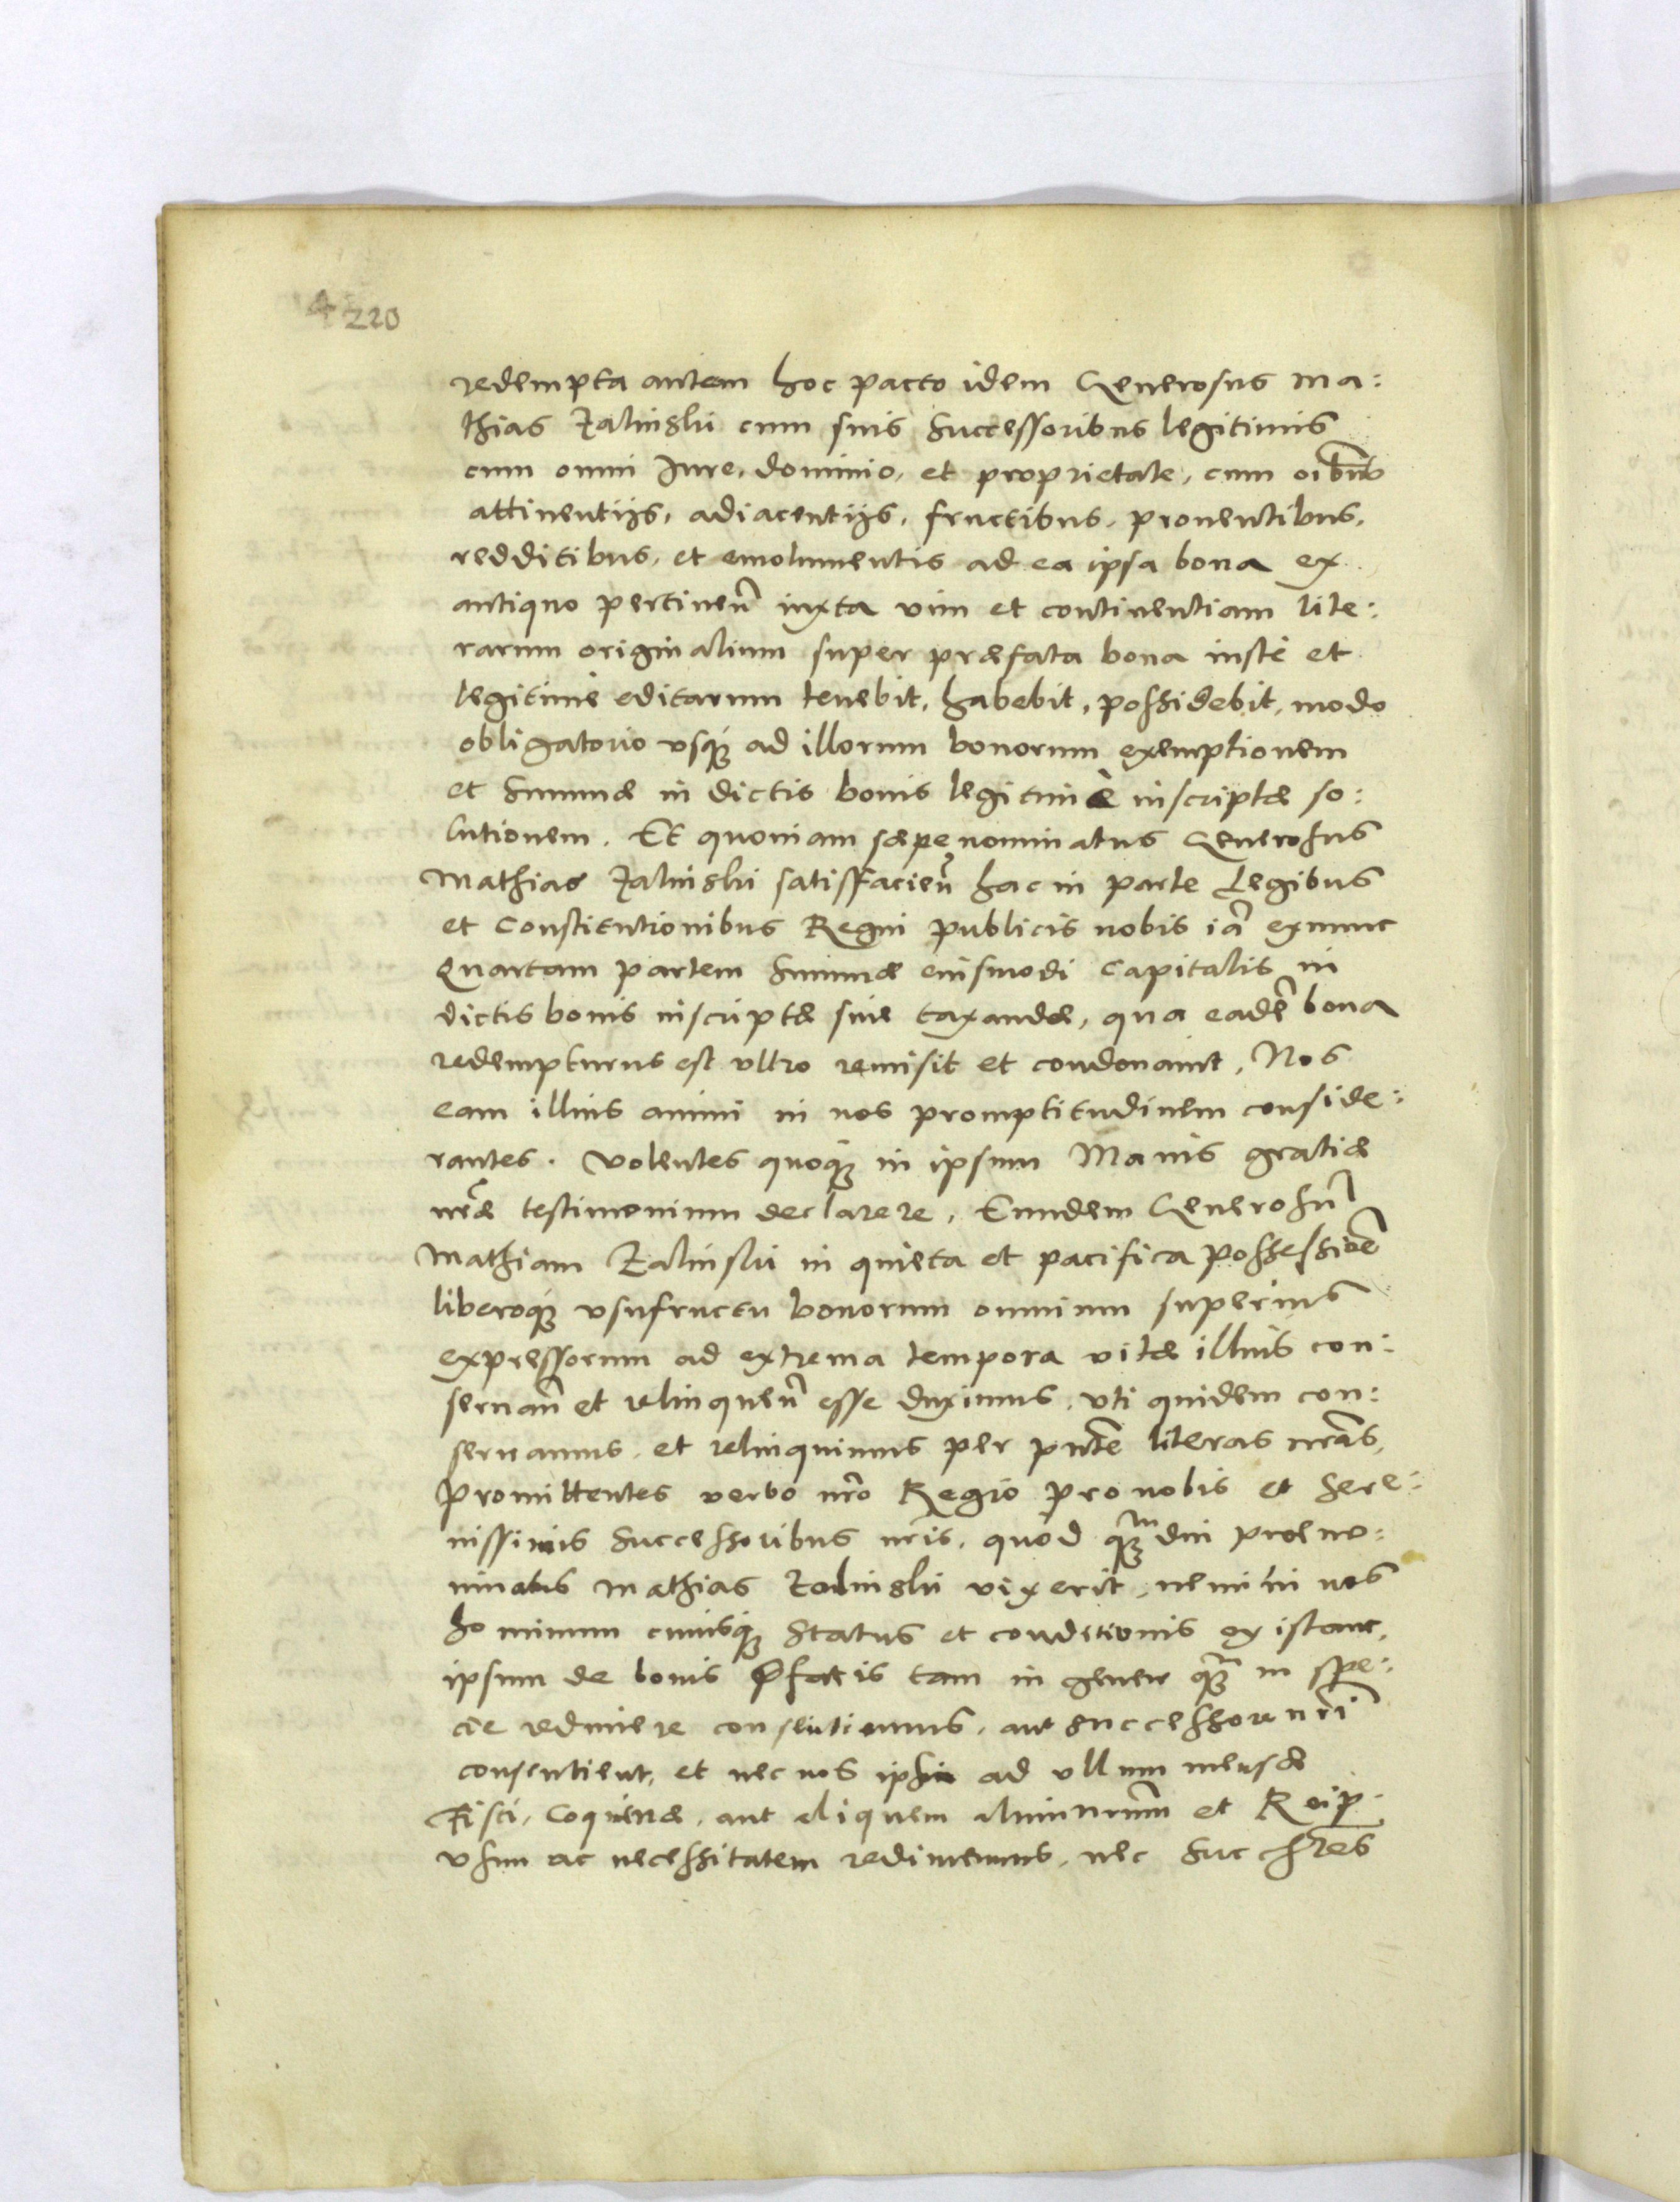 4220
redempta autem hoc pacto idem Generosus Ma:
thias Zalinski cum suis Successoribus legitimis
cum omni Jure, dominio, et proprietate, cum oībus
attinentijs, adiacentijs, fructibus, prouentibus,
redditibus, et emolumentis ad ea ipsa bona ex
antiquo pertineñ iuxta vim et continentiam lite:
rarum originalium super præfata bona iustè et
legitimè editarum tenebit, habebit, possidebit, modo
obligatorio vsq́ue ad illorum bonorum exemptionem
et Summæ in dictis bonis legitimè inscriptæ so:
lutionem. Et quoniam sæpe nominatus Generosus
Mathias Zalinski satisfacieñ hac in parte Legibus
et Constitutionibus Regni publicis nobis iā exnunc
Quartam partem Summæ eiusmodi capitalis in
dictis bonis inscriptæ siue taxandæ, qua eadē bona
redempturus est vltro remisit et condonauit, Nos
eam illius animi in nos promptitudinem conside:
rantes. Volentes quoq́ue in ipsum Manis gratiæ
nr̃æ testimonium declarere, Eundem Generosū
Mathiam Zalinski in quieta et pacifica possessiōe
liberoq́ue vsufructu bonorum omnium superius
expressorum ad extrema tempora vitæ illius con:
seruañ et relinqueñ esse duximus, vti quidem con:
seruamus, et relinquimus per pñte literas nr̃as,
Promittentes verbo nr̃o Regio pro nobis et Sere:
nissimis Successoribus nr̃is, quòd quamdiu præno:
minatus Mathias Zalinski vixerit, nemini nos
hominum cuiusq́ue Status et conditionis existant,
ipsum de bonis p̃fatis tam in genere quàm in spe:
cie redimere consentiemus, aut successores nr̃i
consentient, et nec nos ipsi ad vllum mensæ
Fisci, Coquinæ, aut aliquem alium nr̃um et Reip.
vsum ac necessitatem redimemus, nec Succ̃res